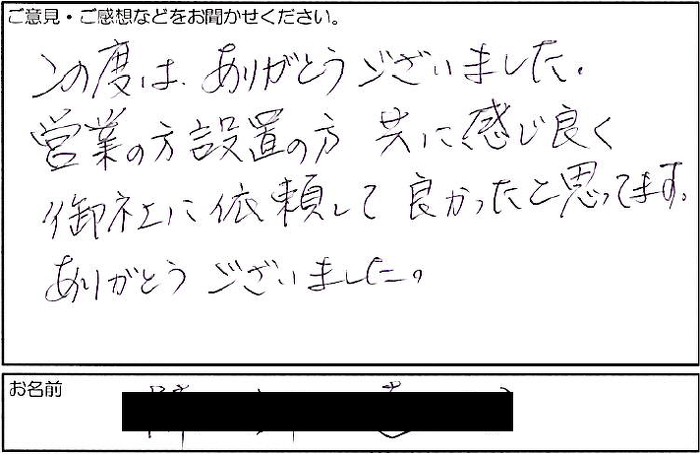 ご意見・ご感想などをお聞かせください。
この度は、ありがとうございました。
営業の方設置の方 共に感じ良く
御社に依頼して良かったと思ってます。
ありがとうございました。
お名前